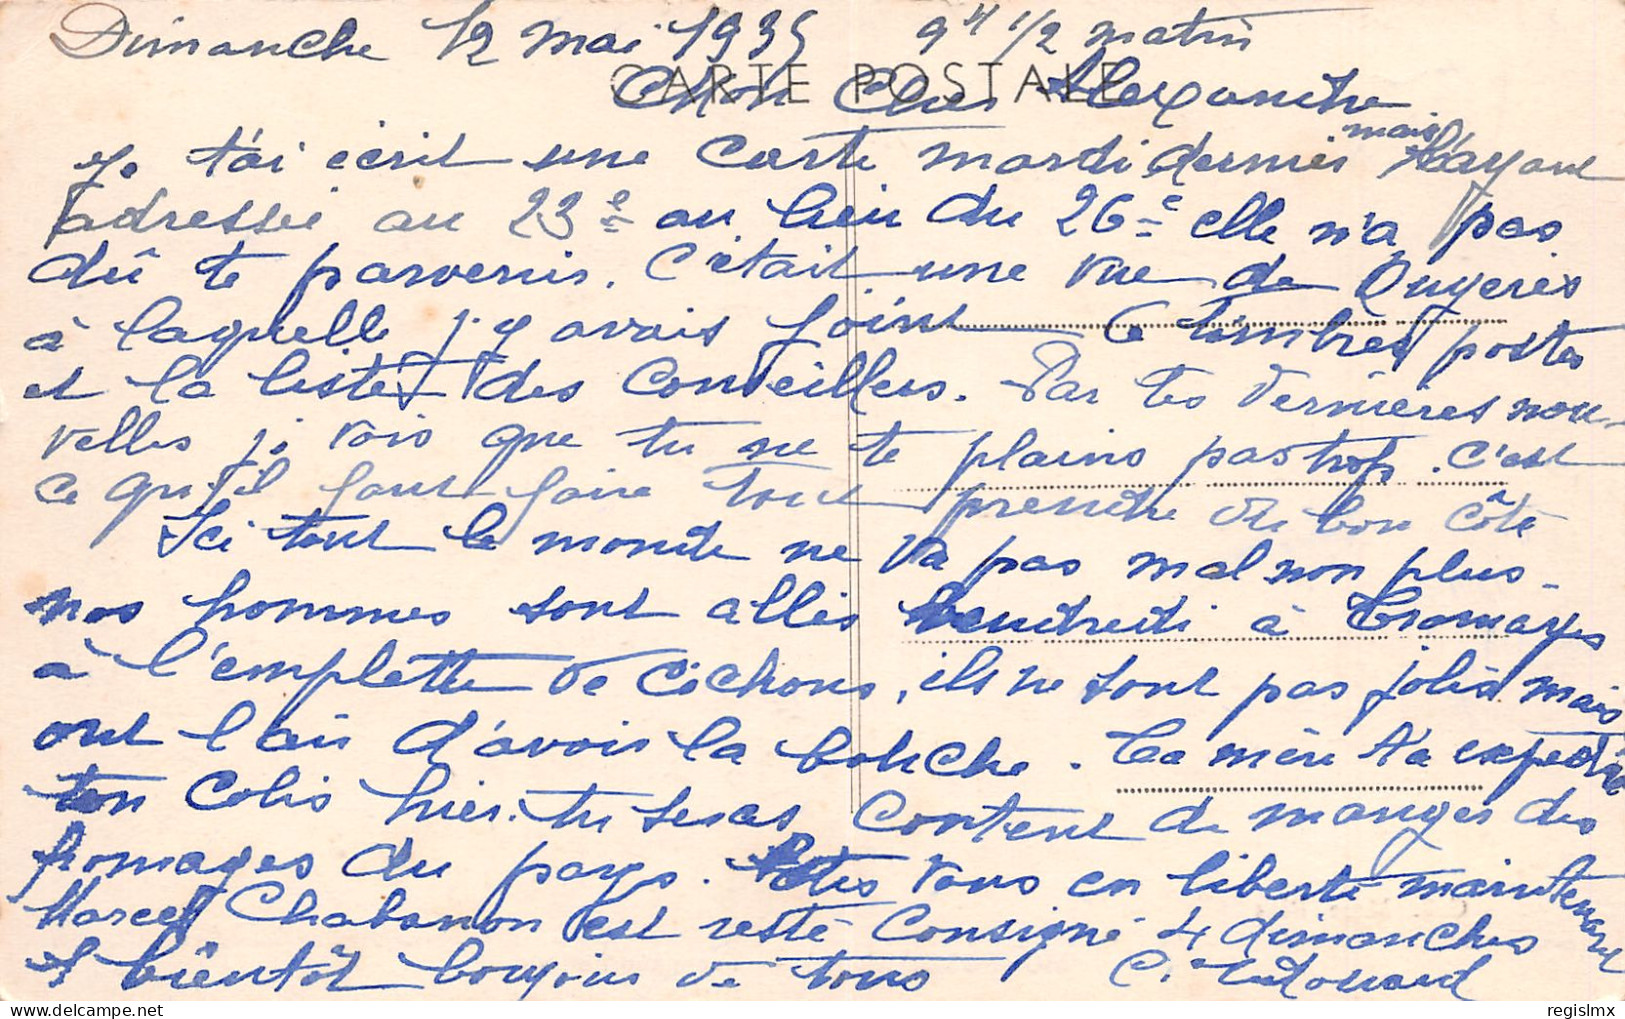 Dimanche 12 mai 1935 9H 1/2 matin
CARTE POSTALE
Mon Cher Alexandre
Je t'ai écrit une carte mardi dernier mais l'ayant
adressée au 23e au lieu du 26e elle n'a pas
dû te parvenir. C'était une vue de
à laquelle j'y avais joint 6 timbres postes
et la liste des Conseillers. Par tes dernières nou-
velles je vois que tu ne te plains pas trop. C'est
ce qu'il faut faire tout prendre du bon côté
Ici tout le monde ne va pas mal non plus-
nos hommes sont allés Vendredi à
à l'emplette de Cochons, ils ne sont pas jolis mais
ont l'air d'avoir la bouche. Ta mère t'a expédié
ton Colis hier. tu seras content de manger des
fromages du pays. Etes vous en liberté maintenant
Marcel Chabanon est resté Consigné 4 dimanches
A bientôt bonjour de tous C. Edouard
regislmx